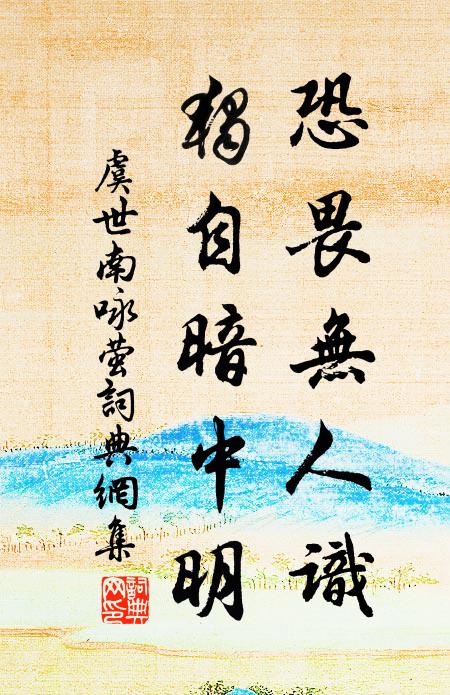 恐畏無人識
獨自暗中明
虞世南咏萤詞典網集
詞典